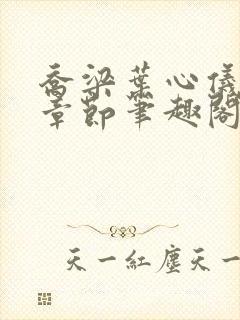 喬梁葉心儀
章節筆趣閣
天一紅塵天一